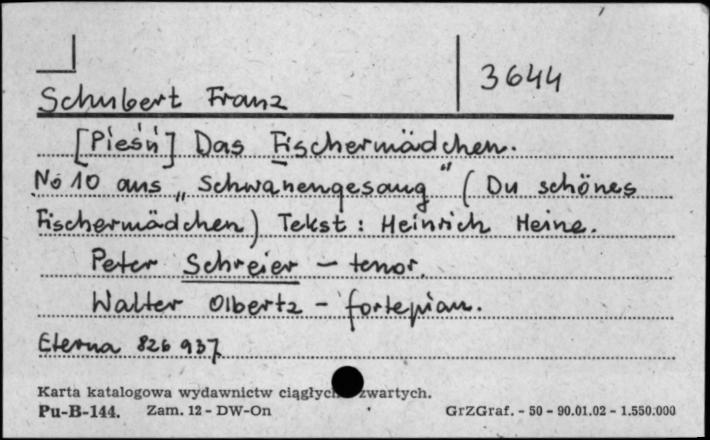 3644
Schubert Franz
[Pieśń] Das Fischermädchen.
No 10 aus „Schwanengesang" (Du schönes
Fischermädchen) Tekst: Heinrich Heine.
Peter Schreier – tenor.
Walter Olbertz – fortepian.
Eterna 826 937
Karta katalogowa wydawnictw ciągłych zwartych.
Pu-B-144. Zam. 12 - DW-On GrZGraf. - 50 - 90.01.02 - 1.550.000